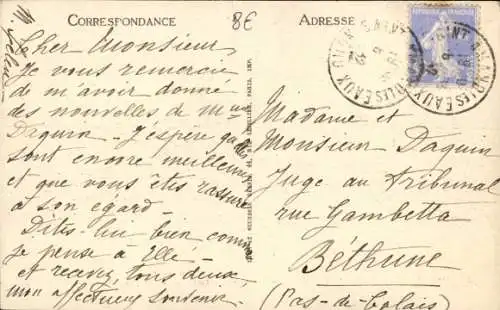 CORRESPONDANCE
8€
ADRESSE
Cher Monsieur
Je vous remercie
de m'avoir donné
des nouvelles de Mme
Daquin - J'espère qu'elles
sont encore meilleures
et que vous êtes rassuré
à son égard -
Dites-lui bien comme
je pense à Elle -
et recevez, tous deux,
mon affectueux souvenir.
Madame et
Monsieur Daquin
Juge au Tribunal
rue Gambetta
Béthune
(Pas-de-Calais)